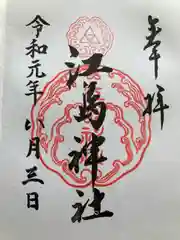 奉拝
江島神社
令和元年八月三日